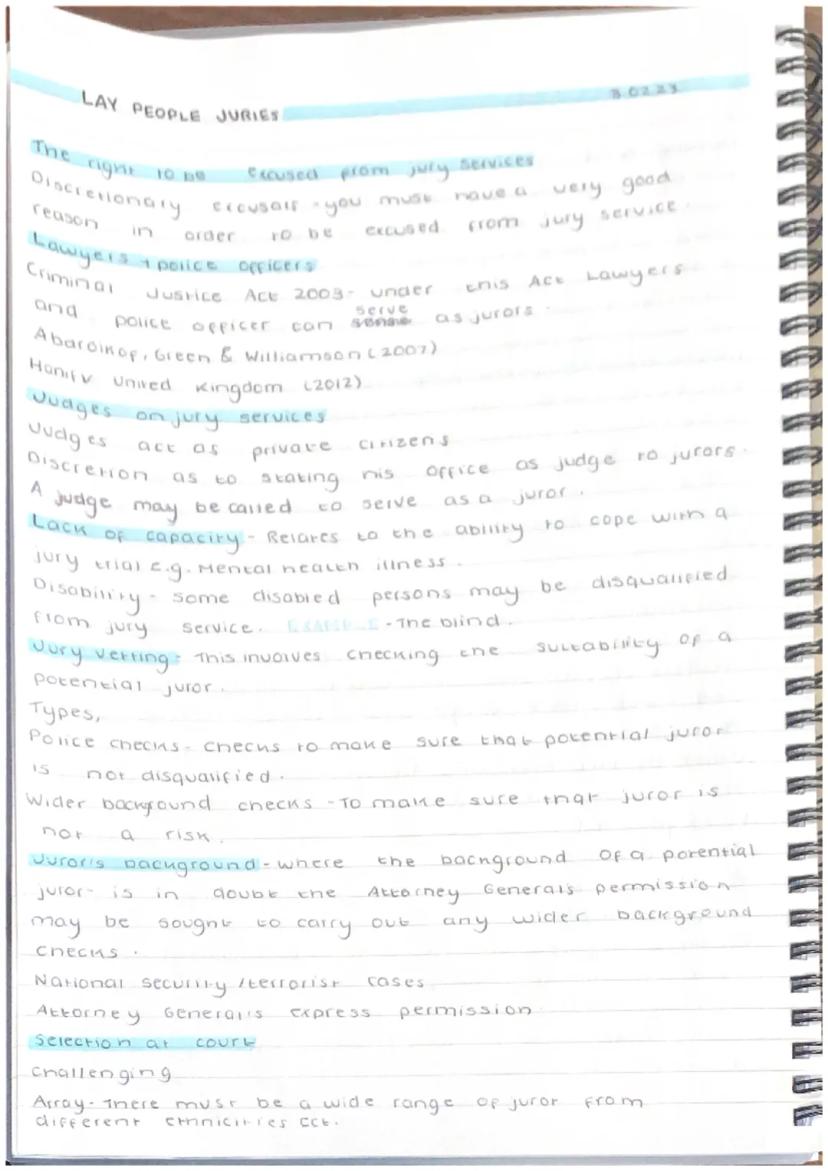 LAY PEOPLE JURIES 3.02.23
The right to be excused from jury services
Discretionary excusals - you must have a very good
reason in order to be excused from jury service.
Lawyers + police officers
Criminal Justice Act 2003 - under this Act Lawyers
and police officer can serve as jurors.
Abaroikop, Green & Williamson (2007)
Hanif v United Kingdom (2012)
Judges on jury services
Judges act as private citizens
Discretion as to stating his office as judge to jurors.
A judge may be called to serve as a juror.
Lack of capacity - Relates to the ability to cope with a
jury trial e.g. Mental health illness.
Disability - some disabled persons may be disqualified
from jury service. EXAMPLE - The blind.
Jury vetting: This involves checking the suitability of a
potential juror.
Types,
Police checks - checks to make sure that potential juror
is not disqualified.
Wider background checks - To make sure that juror is
not a risk.
Juror's background - where the background of a potential
juror - is in doubt the Attorney General's permission
may be sought to carry out any wider background
checks.
National security / terrorist cases
Attorney General's express permission
Selection at court
Challenging
Array - There must be a wide range of juror from
different ethnicities ect.